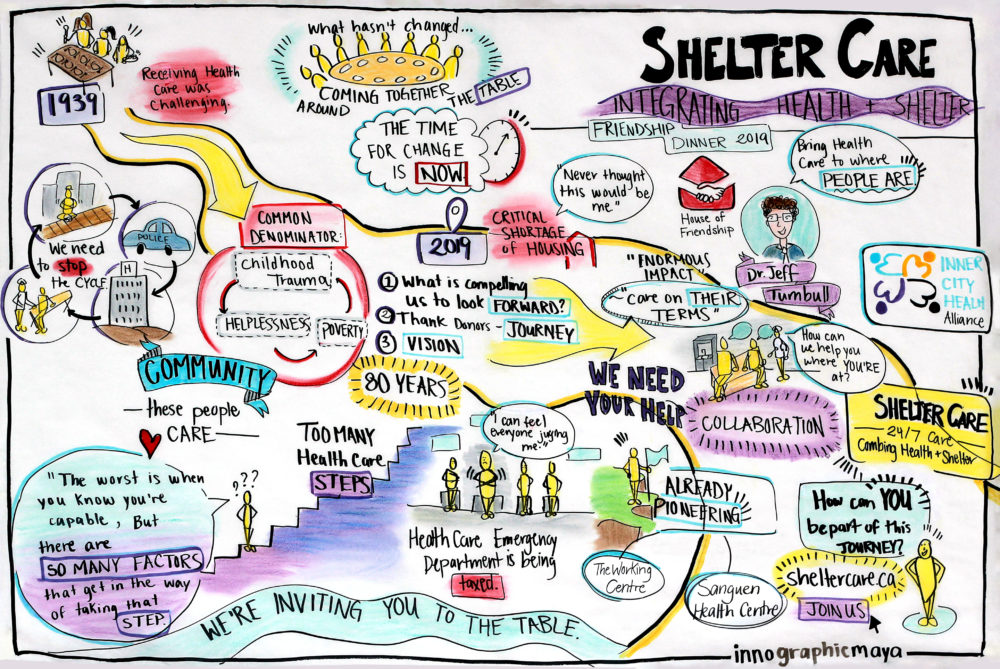 1939
Receiving Health
Care was
Challenging.
What hasn't changed...
COMING TOGETHER
AROUND THE TABLE
THE TIME
FOR CHANGE
IS NOW!
SHELTER CARE
INTEGRATING HEALTH + SHELTER
FRIENDSHIP
DINNER 2019
"Never thought
this would be
me."
House of
Friendship
Bring Health
Care to where
PEOPLE ARE
Dr. Jeff
Turnbull
INNER
CITY
HEALTH
Alliance
We need
to stop
the CYCLE
POLICE
H
COMMON
DENOMINATOR:
Childhood
Trauma
HELPLESSNESS
POVERTY
2019
CRITICAL
SHORTAGE
of HOUSING
1 What is compelling
us to look FORWARD?
2 Thank Donors - JOURNEY
3 VISION
"ENORMOUS
IMPACT"
"care on THEIR
TERMS"
How can
we help you
where YOU'RE
at?
WE NEED
YOUR HELP
COLLABORATION
SHELTER CARE
24/7 Care
Combing Health + Shelter
COMMUNITY
— these people
CARE —
80 YEARS
TOO MANY
Health Care
STEPS
"The worst is when
you know you're
capable, But
there are
SO MANY FACTORS
that get in the way
of taking that
STEP.
???
"I can feel
everyone juging
me."
Health Care Emergency
Department is being
taxed.
ALREADY
PIONEERING
The Working
Centre
Sanguen
Health Centre
How can YOU
be part of this
JOURNEY?
sheltercare.ca
JOIN US
WE'RE INVITING YOU TO THE TABLE.
innographicmaya